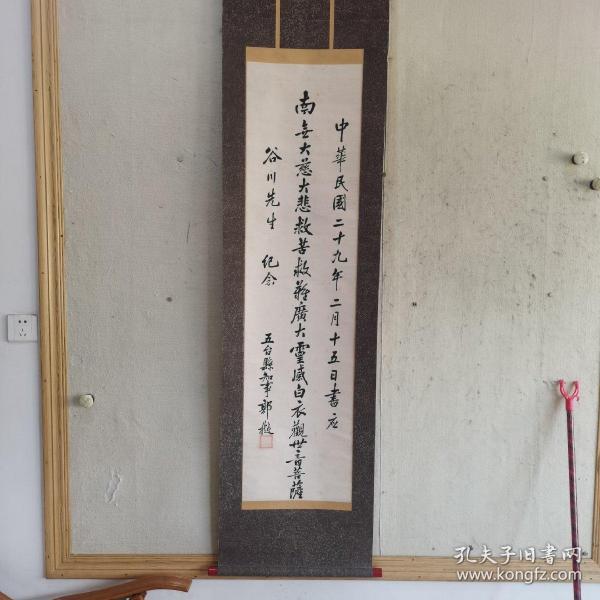 中華民國二十九年二月十五日書应
南無大慈大悲救苦救難廣大靈感白衣觀世音菩薩
谷川先生 纪念
五台縣知事鄭
孔夫子旧書网
www.kongfz.com